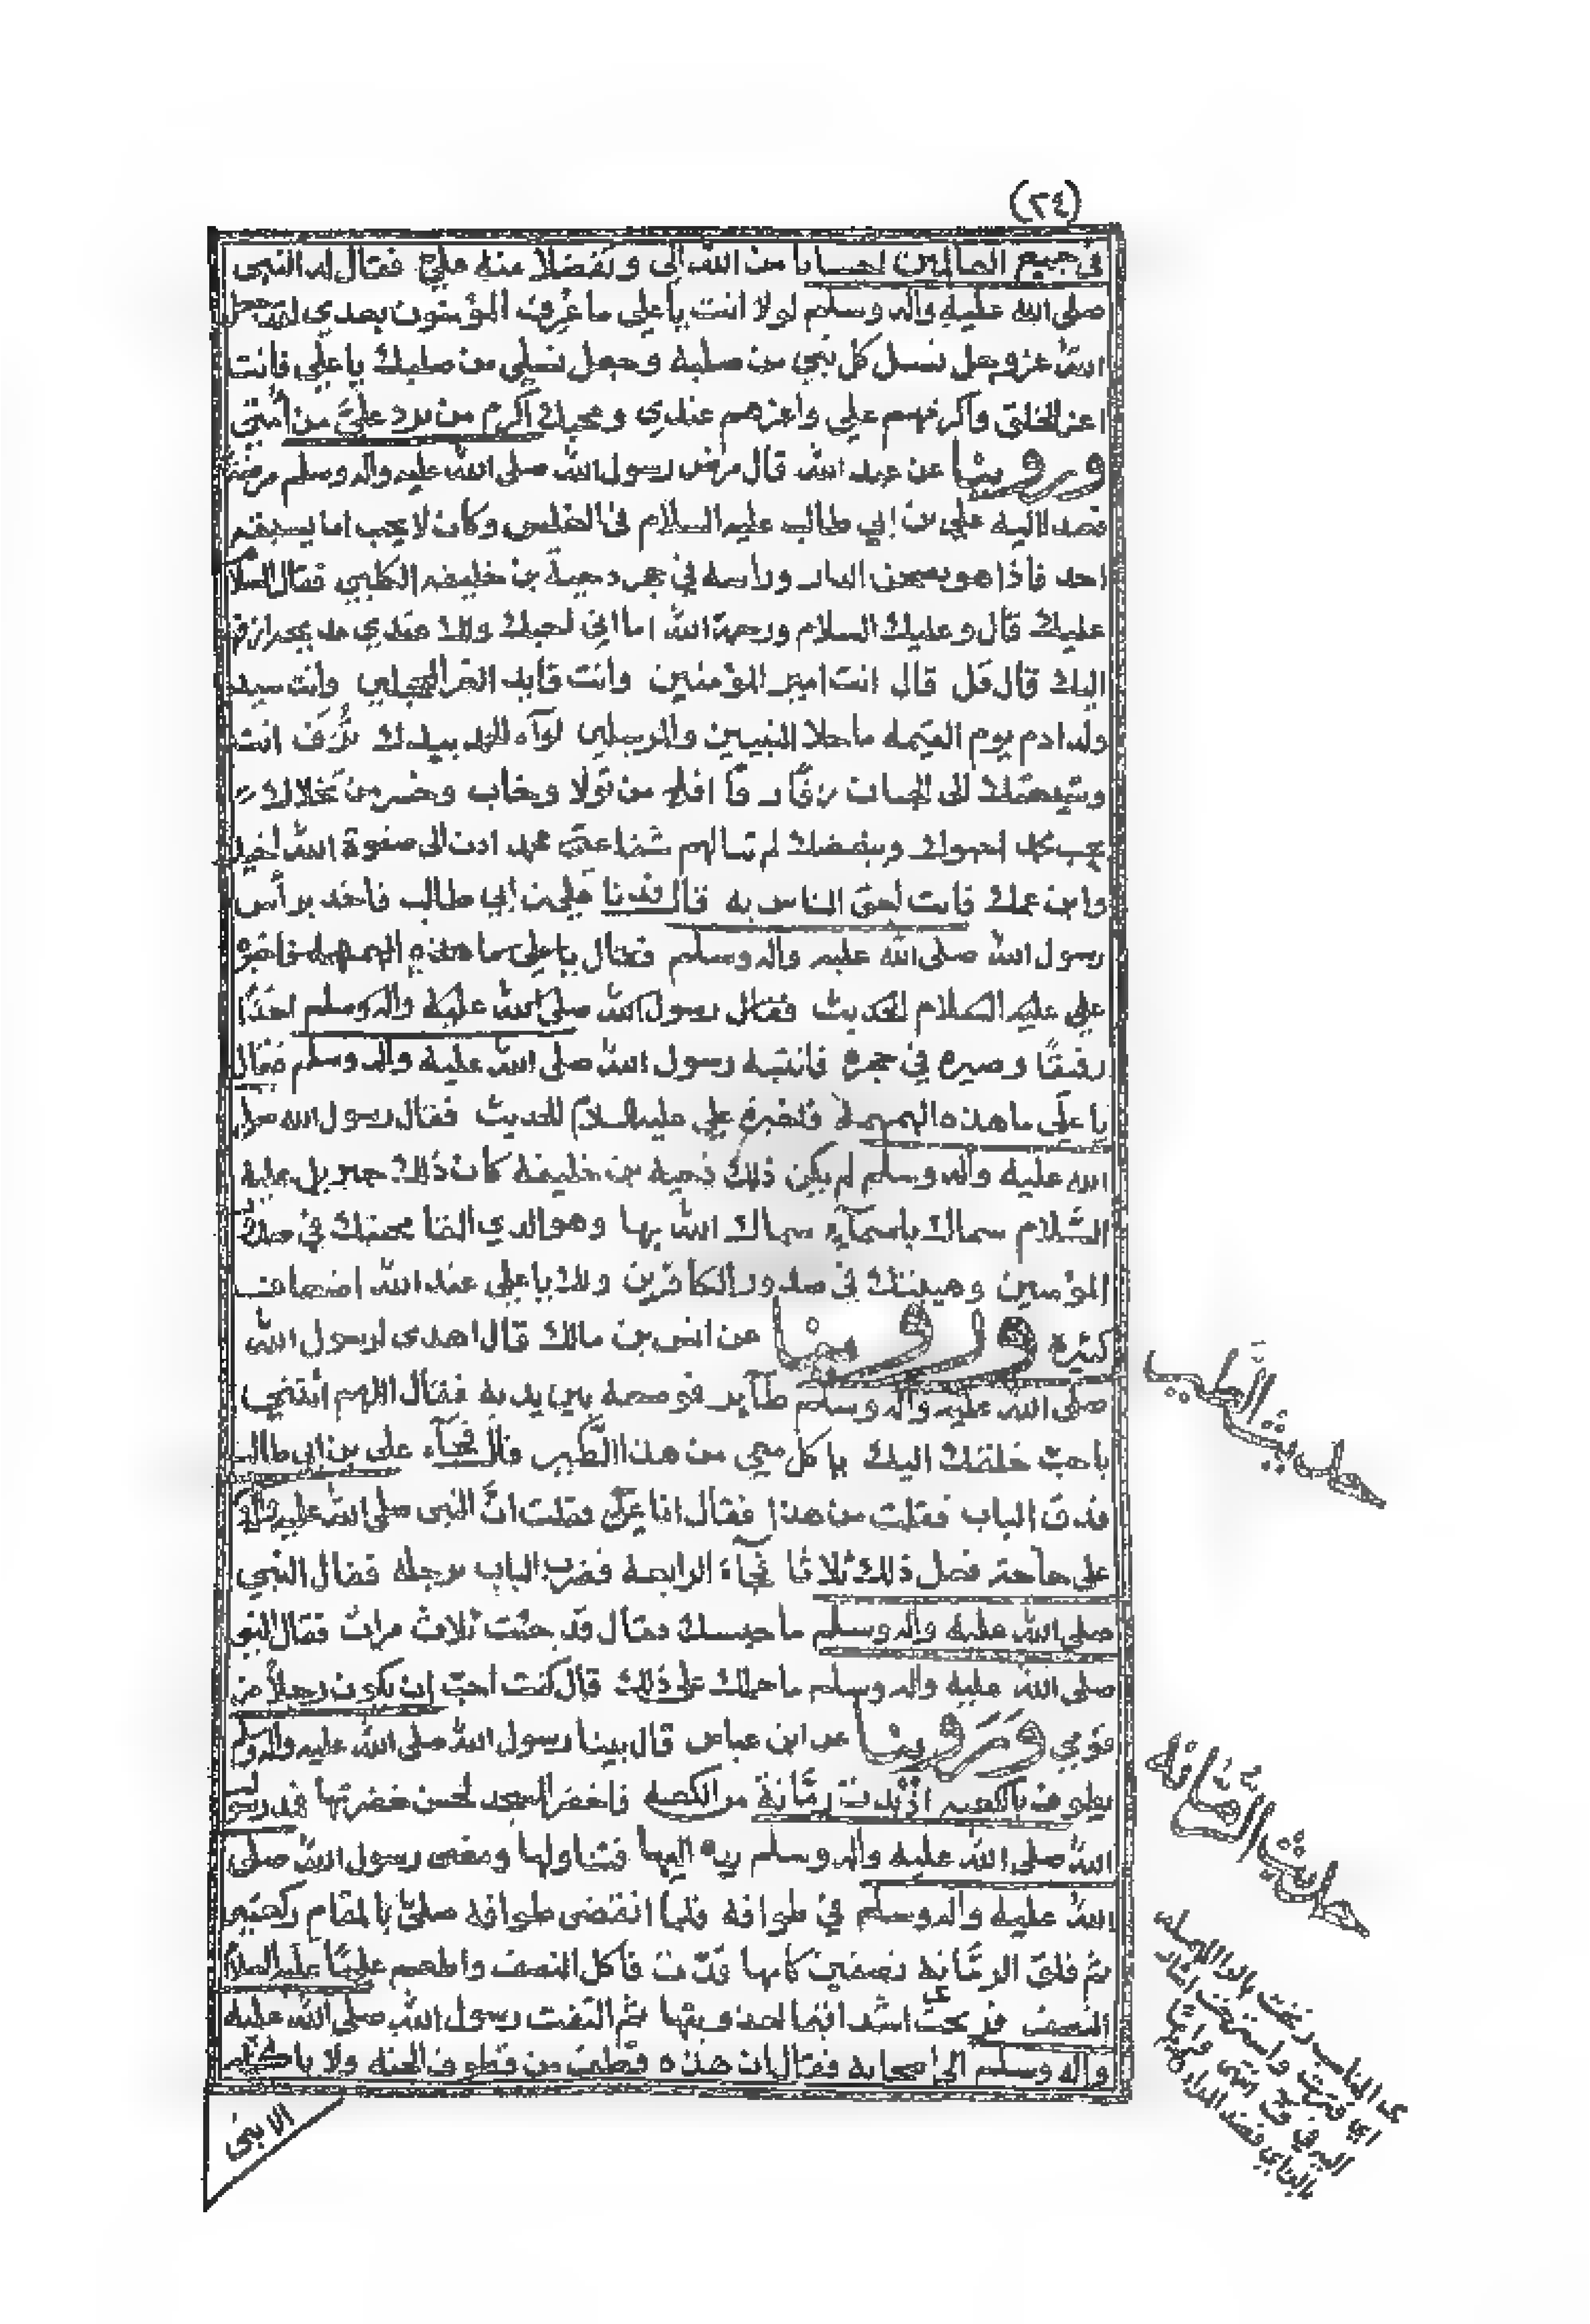 (٢٤)
في جميع العالمين احسانا من الله الى وتفضلا منه علي فقال له النبي
صلى الله عليه واله وسلم لولا انت يا علي ما عرف المؤمنون بعدي لقد جعل
الله عزوجل نسل كل نبي من صلبه وجعل نسلي من صلبك يا علي فانت
اعز الخلق واكرمهم علي واعزهم عندي ومحبك اكرم من يرد علي من امتي
وروينا عن عبد الله قال مرض رسول الله صلى الله عليه واله وسلم مرضة
فغدا اليه علي بن ابي طالب عليه السلام في الغلس وكان لا يحب ان يسبقه
احد فاذا هو بصحن الدار وراسه في حجر دحية بن خليفه الكلبي فقال السلام
عليك قال وعليك السلام ورحمة الله اما اني احبك ولك عندي مديحة ازفها
اليك قال قل قال انت امير المؤمنين وانت قايد الغر المحجلين وانت سيد
ولد ادم يوم القيمه ما خلا النبيين والمرسلين لواء الحمد بيدك تزف انت
وشيعتك الى الجنان زفا زفا افلح من تولاك وخاب وخسر من تخلاك
بحب محمد احبوك وببغضك لم تنالهم شفاعة محمد ادن الى صفوة الله اخيك
وابن عمك فانت احق الناس به قال فدنا علي بن ابي طالب فاخذ براس
رسول الله صلى الله عليه واله وسلم فقال يا علي ما هذه الهمهمه فاخبره
علي عليه السلام الحديث فقال رسول الله صلى الله عليه واله وسلم اخذا
رفيقا وصيره في حجره فانتبه رسول الله صلى الله عليه واله وسلم فقال
يا علي ما هذه الهمهمة فاخبره علي عليه السلام الحديث فقال رسول الله صلى
الله عليه واله وسلم لم يكن ذلك دحية بن خليفة كان ذلك جبريل عليه
السلام سماك باسماء سماك الله بها وهو الذي القا محبتك في صدور
المؤمنين وهيبتك في صدور الكافرين ولك يا علي عند الله اضعاف
كثيره وروينا عن انس بن مالك قال اهدى لرسول الله
صلى الله عليه واله وسلم طآير فوضعه بين يديه فقال اللهم ائتني
باحب خلقك اليك ياكل معي من هذا الطير قال فجآء علي بن ابي طالب
فدق الباب فقلت من هذا فقال انا علي فقلت ان النبي صلى الله عليه واله
على حاجة فعل ذلك ثلاثا فجآء الرابعة فضرب الباب برجله فقال النبي
صلى الله عليه واله وسلم ما حبسك فقال قد جئت ثلاث مرات فقال النبي
صلى الله عليه واله وسلم ما حملك على ذلك قال كنت احب ان يكون رجلا من
قومي وروينا عن ابن عباس قال بينا رسول الله صلى الله عليه واله وسلم
يطوف بالكعبه اذ بدت رمانة من الكعبه فاخضر المسجد لحسن خضرتها فمد رسول
الله صلى الله عليه واله وسلم يده اليها فتناولها ومضى رسول الله صلى
الله عليه واله وسلم في طوافه فلما انقضى طوافه صلى بالمقام ركعتين
ثم فلق الرمانه نصفين كانها قدت فاكل النصف واطعم عليا عليه السلام
النصف فرنحت اشداقهما لعذوبتها ثم التفت رسول الله صلى الله عليه
واله وسلم الى اصحابه فقال ان هذه قطف من قطوف الجنه ولا ياكله
الا نبي
حديث الطير
حديث الرمانه